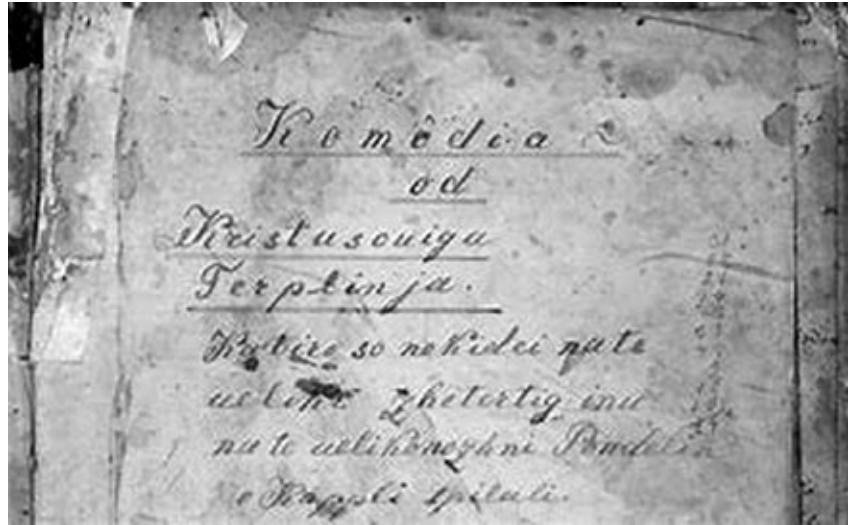 Komôdia
od
Kristusouiga
Terplinja.
Katiro so nekidei na te
uelike zhetertig inu
na te uelikonozhni Pondelik
o Kappli spilali.